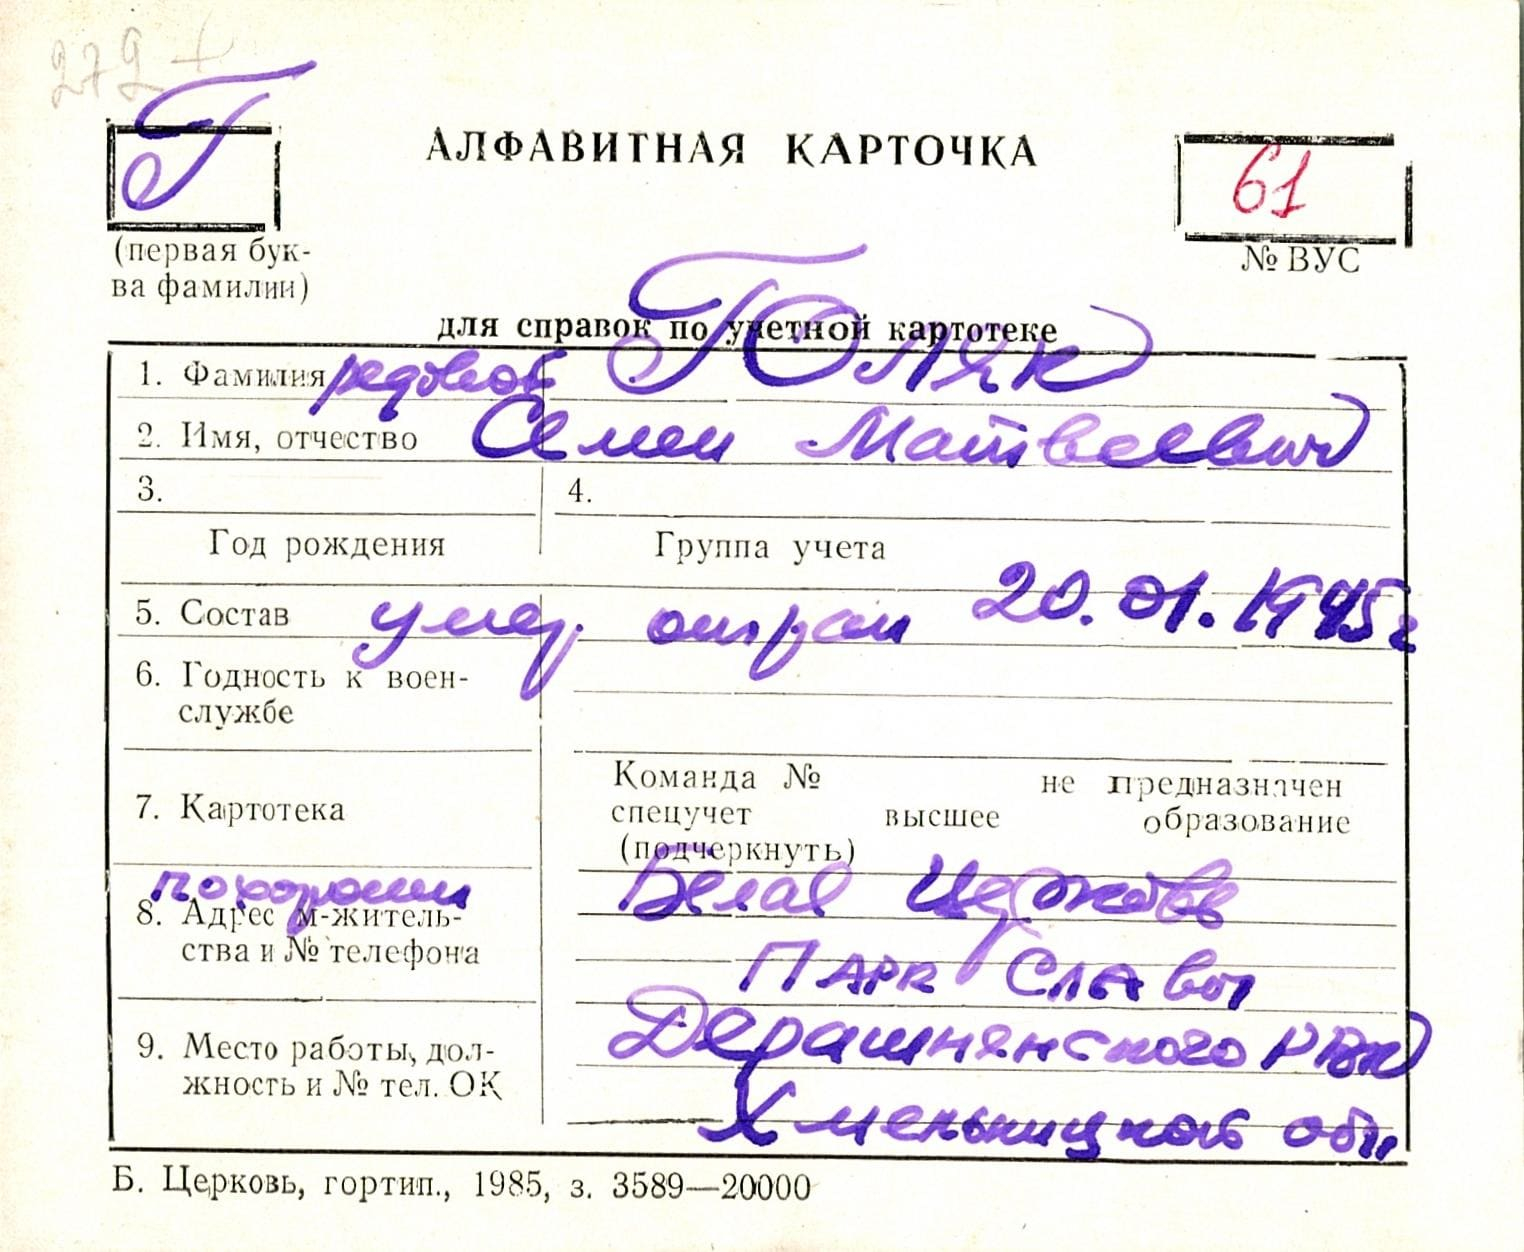 279 +
Г
АЛФАВИТНАЯ КАРТОЧКА
61
(первая бук-
ва фамилии)
№ ВУС
для справок по учетной картотеке
1. Фамилия рядовой Голяк
2. Имя, отчество Семен Матвеевич
3. 4.
Год рождения Группа учета
5. Состав умер от ран 20.01.1945 г
6. Годность к воен-
службе
Команда № не предназначен
7. Картотека спецучет высшее образование
(подчеркнуть)
похоронен Белая Церковь
8. Адрес м-житель-
ства и № телефона
Парк Славы
Деражнянского РВК
9. Место работы, дол-
жность и № тел. ОК
Хмельницкой обл.
Б. Церковь, гортип., 1985, з. 3589—20000